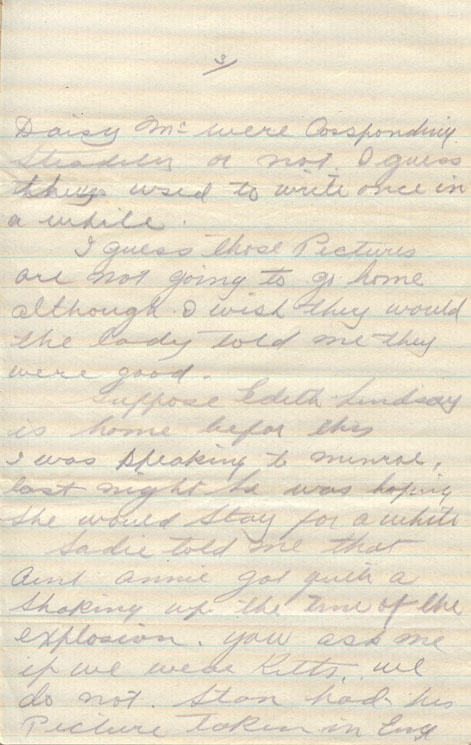 3/
Daisy Mc were Cosponding
Steadily or not. I guess
they used to write once in
a while.
I guess those Pictures
are not going to go home
although I wish they would
the lady told me they
were good.
Suppose Edith Lindsay
is home befor this
I was speaking to Munroe,
last night he was hoping
she would Stay for a while
Sadie told me that
Aint Annie got quite a
Shaking up the time of the
explosion. you ask me
if we wear Kilts, we
do not. Stan had his
Picture taken in Eng